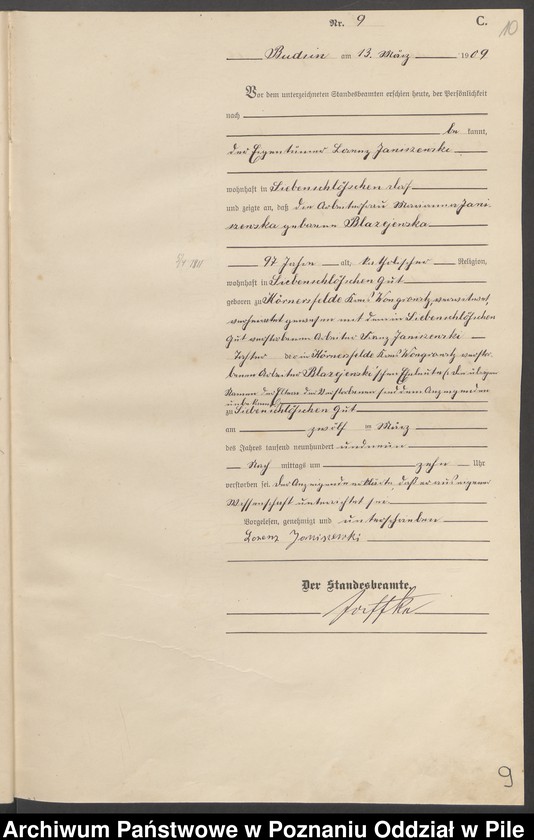 Nr. 9 C.
10
Budsin am 13. März 1909
Vor dem unterzeichneten Standesbeamten erschien heute, der Persönlichkeit
nach
be kannt,
der Eigentümer Lorenz Janiszewski
wohnhaft in Liebenschlößchen
und zeigte an, daß die Arbeiterfrau Marianna Jani-
szewska geborene Blazejewska
97 Jahre alt, katholischer Religion,
wohnhaft in Liebenschlößchen Gut
geboren zu Körnersfelde Kreis Wongrowitz, verwitwet,
verheiratet gewesen mit dem in Liebenschlößchen
Gut verstorbenen Arbeiter Franz Janiszewski
Tochter der in Körnersfelde Kreis Wongrowitz verstor-
benen Arbeiter Blazejewski'schen Eheleute (die übrigen
Namen der Eltern der Verstorbenen sind dem Anzeigenden
unbekannt)
zu Liebenschlößchen Gut
am zwölf ten März
des Jahres tausend neunhundert und neun
Nach mittags um zehn Uhr
verstorben sei. Der Anzeigende erklärte, daß er aus eigener
Wissenschaft unterrichtet sei
Vorgelesen, genehmigt und unterschrieben
Lorenz Janiszewski
Der Standesbeamte.
9
Archiwum Państwowe w Poznaniu Oddział w Pile